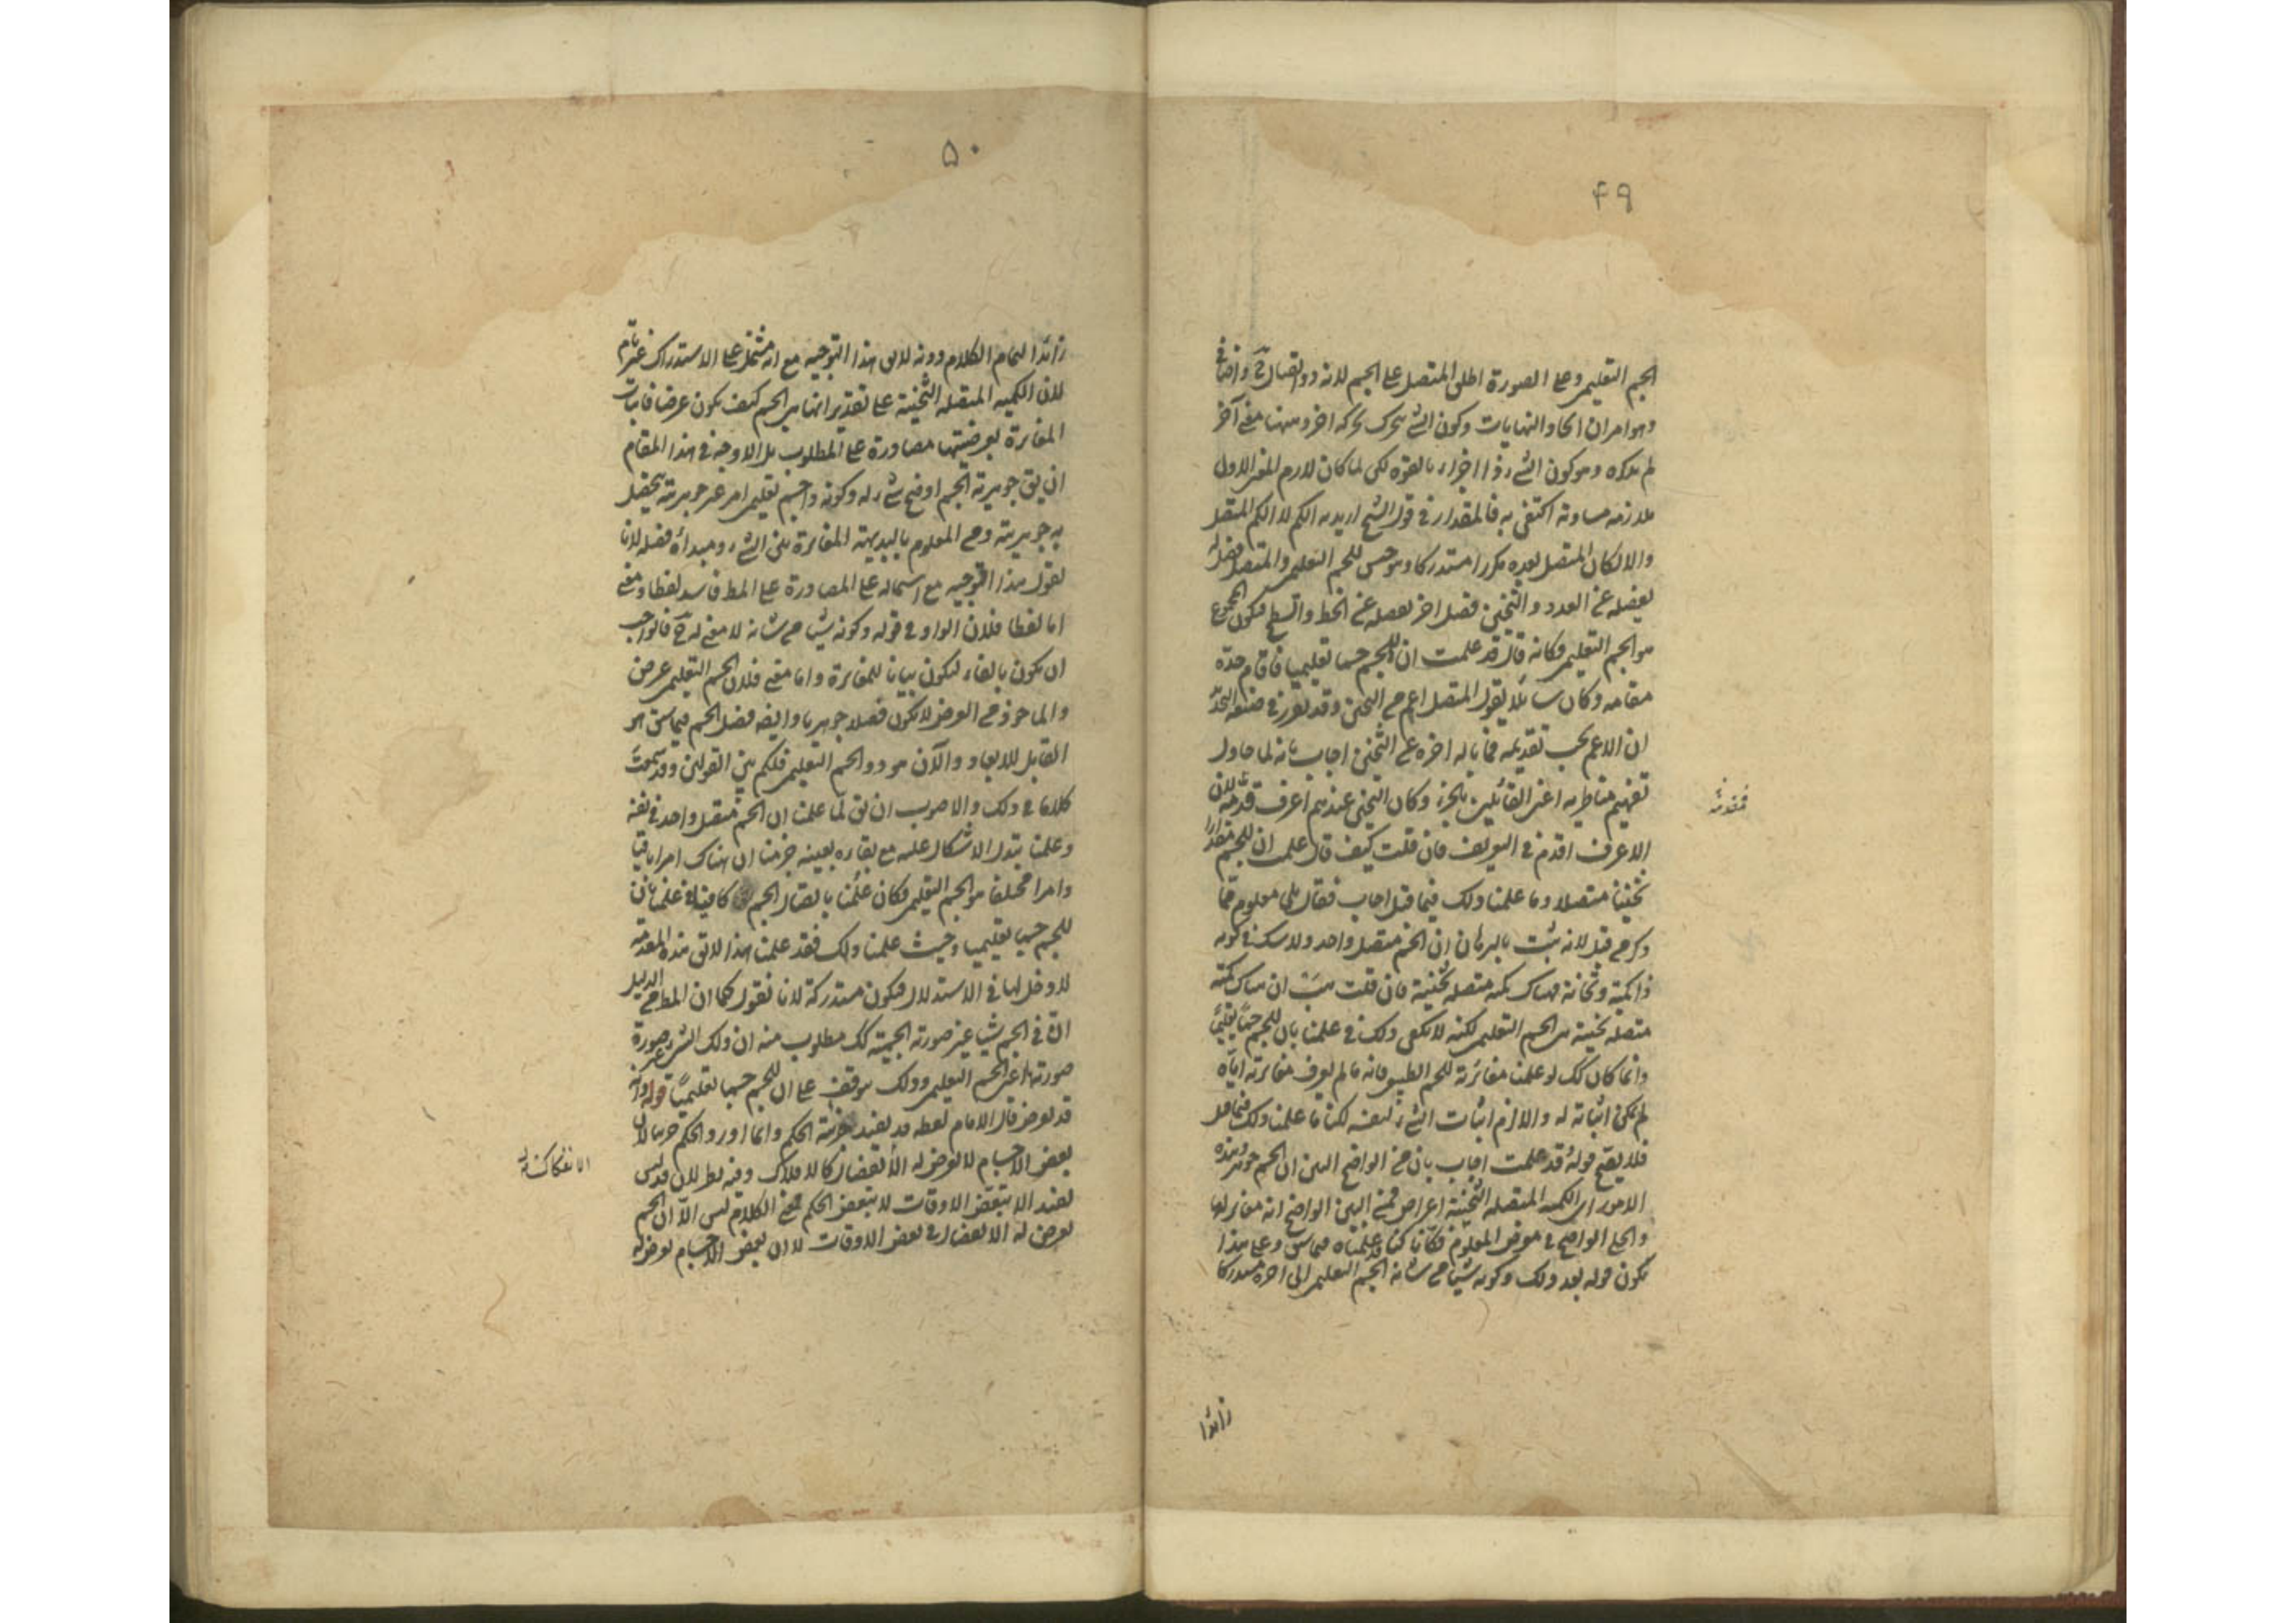 ٤٩
الجسم التعليمى وعلى الصورة اطلق المتصل على الجسم لانه ذو اتصال ح واضافى
وهو امران اتحاد النهايات وكون الشئ يتحرك بحركة اخر وههنا معنى آخر
لم يذكره وهو كون الشئ ذا اجزاء بالقوة لكن لما كان لازم المعنى الاول
ملازمة مساوية اكتفى به فالمقدار فى قول الشيخ اريد به الكم لا الكم المتصل
والا لكان المتصل بعده مكررا مستدركا وهو جنس للجسم التعليمى والمتصل فصل له
يفصله عن العدد والثخين فصل اخر يفصله عن الخط والسطح فيكون المجموع
هو الجسم التعليمى فكانه قال قد علمت ان للجسم جسما تعليميا فاقام حده
مقامه وكان سائلا يقول المتصل اعم من الثخين وقد تقرر فى صنعة التحد
ان الاعم يجب تقديمه فما باله اخره عن الثخين اجاب بانه لما حاول
تفهيم مناظريه اعنى القائلين بالجزء وكان الثخين عندهم اعرف قدمه لان
الاعرف اقدم فى التعريف فان قلت كيف قال علمت ان للجسم مقدارا
ثخينا متصلا وما علمنا ذلك فيما قبل اجاب فقال بلى معلوم مما
ذكر من قبل لانه ثبت بالبرهان ان الجسم متصل واحد ولا شك فى كونه
ذا كمية وثخانة فهناك كمية متصلة ثخينة فان قلت هب ان هناك كمية
متصلة ثخينة هى الجسم التعليمى لكنه لا يكفى ذلك فى علمنا بان للجسم جسما تعليميا
وانما كان كك لو علمنا مغايرته للجسم الطبيعى فانه ما لم يعرف مغايرته اياه
لم يمكن اثباته له والا لزم اثبات الشئ لنفسه لكنا ما علمنا ذلك فيما قبل
فلا يصح قوله قد علمت اجاب بان من الواضح البين ان الجسم جوهر وهذه
الامور اى الكمية المتصلة الثخينة اعراض فمن البين الواضح انه مغاير لها
والجلى الواضح فى موقع المعلوم فكانا كنا قد علمناه فيما سبق وعلى هذا
يكون قوله بعد ذلك وكونه شيئا من شانه الجسم التعليمى الى اخره مستدركا
مقدمة
زائدا
٥٠
زائدا لتمام الكلام دونه لا يق هذا التوجيه مع انه مشتمل على الاستدراك غير تام
لان الكمية المتصلة الثخينة على تقدير انها هى الجسم كيف يكون عرضا فاثبات
المغايرة بعرضيتها مصادرة على المطلوب بل الاوجه فى هذا المقام
ان يق جوهرية الجسم اوضح شئ له وكونه ذا جسم تعليمى امر غير جوهريته يحصل
به جوهريته ومن المعلوم بالبديهة المغايرة بين الشئ ومبدأ فصله لانا
نقول هذا التوجيه مع اشتماله على المصادرة على المط فاسد لفظا ومعنى
اما لفظا فلان الواو فى قوله وكونه شيئا من شانه لا معنى له ح فالواجب
ان يكون بالفاء ليكون بيانا للمغايرة واما معنى فلان الجسم التعليمى عرض
والماخوذ من العرض لا يكون فصلا جوهريا وايضا فصل الجسم فيما سبق هو
القابل للابعاد والآن هو ذو الجسم التعليمى فلكم بين القولين وقد سمعت
كلاما فى ذلك والاصوب ان يق لما علمت ان الجسم متصل واحد فى نفسه
وعلمت تبدل الاشكال عليه مع بقاءه بعينه جزمنا ان هناك امرا باقيا
وامرا مختلفا هو الجسم التعليمى فكان علمنا باتصال الجسم كافيا فى علمنا بان
للجسم جسما تعليميا وحيث علمنا ذلك فقد علمنا هذا لا يق هذه المقدمة
لا دخل لها فى الاستدلال فيكون مستدركة لانا نقول كما ان المط من الدليل
ان فى الجسم شيئا غير صورته الجسمية كك مطلوب منه ان ذلك الشئ غير صورة
صورتها اعنى الجسم التعليمى وذلك موقوف على ان للجسم جسما تعليميا قوله وانه
قد يعرض قال الامام لفظه قد يفيد جزئية الحكم وانما اورد الحكم جزئيا لان
بعض الاجسام لا يعرض له الانفصال كالافلاك وفيه نظر لان قد ليس
يفيد الا تبعض الاوقات لا بتبعض الحكم فمعنى الكلام ليس الا ان الجسم
يعرض له الانفصال فى بعض الاوقات لا ان بعض الاجسام يعرض له
الانفكاكية